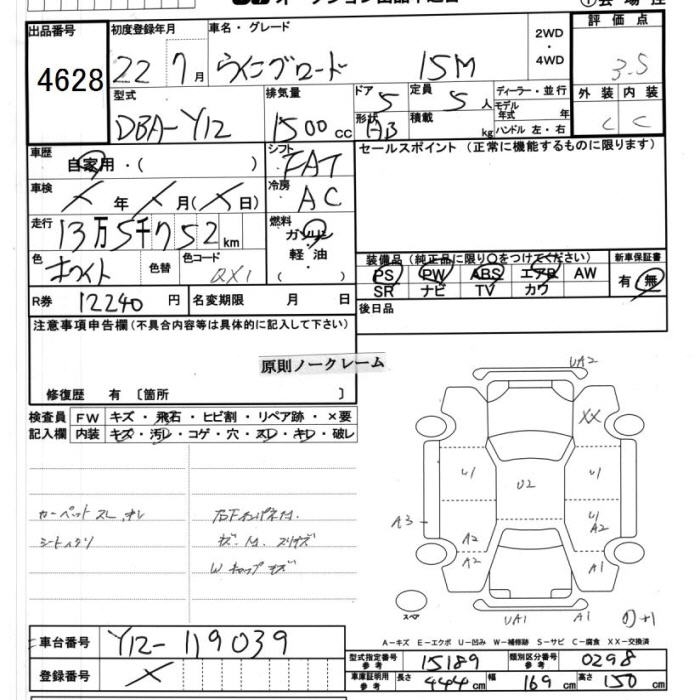 出品番号
4628
初度登録年月
22 7月
車名・グレード
ウイングロード 15M
2WD
・
4WD
評価点
3.5
型式
DBA-Y12
排気量
1500 cc
ドア 5
形状 HB
定員 5 人
積載 kg
ディーラー・並行
モデル年式 年
ハンドル 左・右
外装 内装
C C
車歴
自家用・( )
シフト
FAT
セールスポイント (正常に機能するものに限ります)
車検
X 年 X 月(X 日)
冷房
AC
走行
13万5千752 km
燃料
ガソリン
・
軽油
( )
色
ホワイト
色替
色コード
QX1
装備品(純正品に限り○をつけてください)
PS PW ABS エアB AW
SR ナビ TV カワ
新車保証書
有 無
R券 12240 円
名変期限 月 日
後日品
注意事項申告欄(不具合内容等は具体的に記入して下さい)
原則ノークレーム
修復歴 有 〔箇所 〕
検査員
記入欄
FW キズ・飛石・ヒビ割・リペア跡・×要
内装 キズ・汚レ・コゲ・穴・スレ・キレ・破レ
カーペットスレ、キレ
W キャップ キズ
UA2
XX
U1
U2
U1
A3
A2
A2
U1
A2
A1
スペア
UA1
A1
A-キズ E-エクボ U-凹み W-補修跡 S-サビ C-腐食 XX-交換済
車台番号
Y12-119039
登録番号
X
型式指定番号
参考
15189
類別区分番号
参考
0298
車庫証明用
参考
長さ 444 cm
幅 169 cm
高さ 150 cm